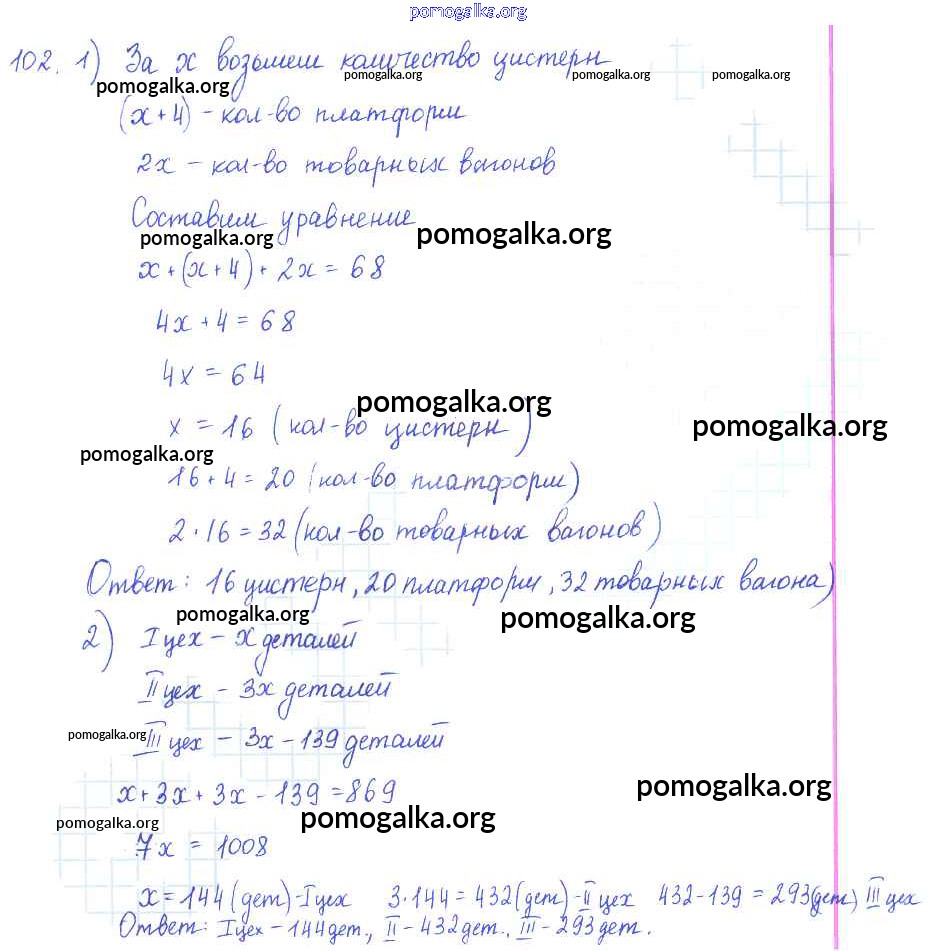 pomogalka.org
102. 1) За x возьмем количество цистерн
pomogalka.org pomogalka.org pomogalka.org pomogalka.org
(x+4) - кол-во платформ
2x - кол-во товарных вагонов
Составим уравнение
pomogalka.org pomogalka.org
x+(x+4)+2x=68
4x+4=68
4x=64
pomogalka.org
x=16 (кол-во цистерн)
pomogalka.org pomogalka.org
16+4=20 (кол-во платформ)
2·16=32 (кол-во товарных вагонов)
Ответ: 16 цистерн, 20 платформ, 32 товарных вагона)
pomogalka.org pomogalka.org
2) I цех - x деталей
II цех - 3x деталей
pomogalka.org
III цех - 3x-139 деталей
x+3x+3x-139=869
pomogalka.org
pomogalka.org pomogalka.org
7x = 1008
x=144 (дет)-I цех 3·144=432(дет)-II цех 432-139=293(дет) III цех
Ответ: I цех-144дет., II-432дет., III-293дет.